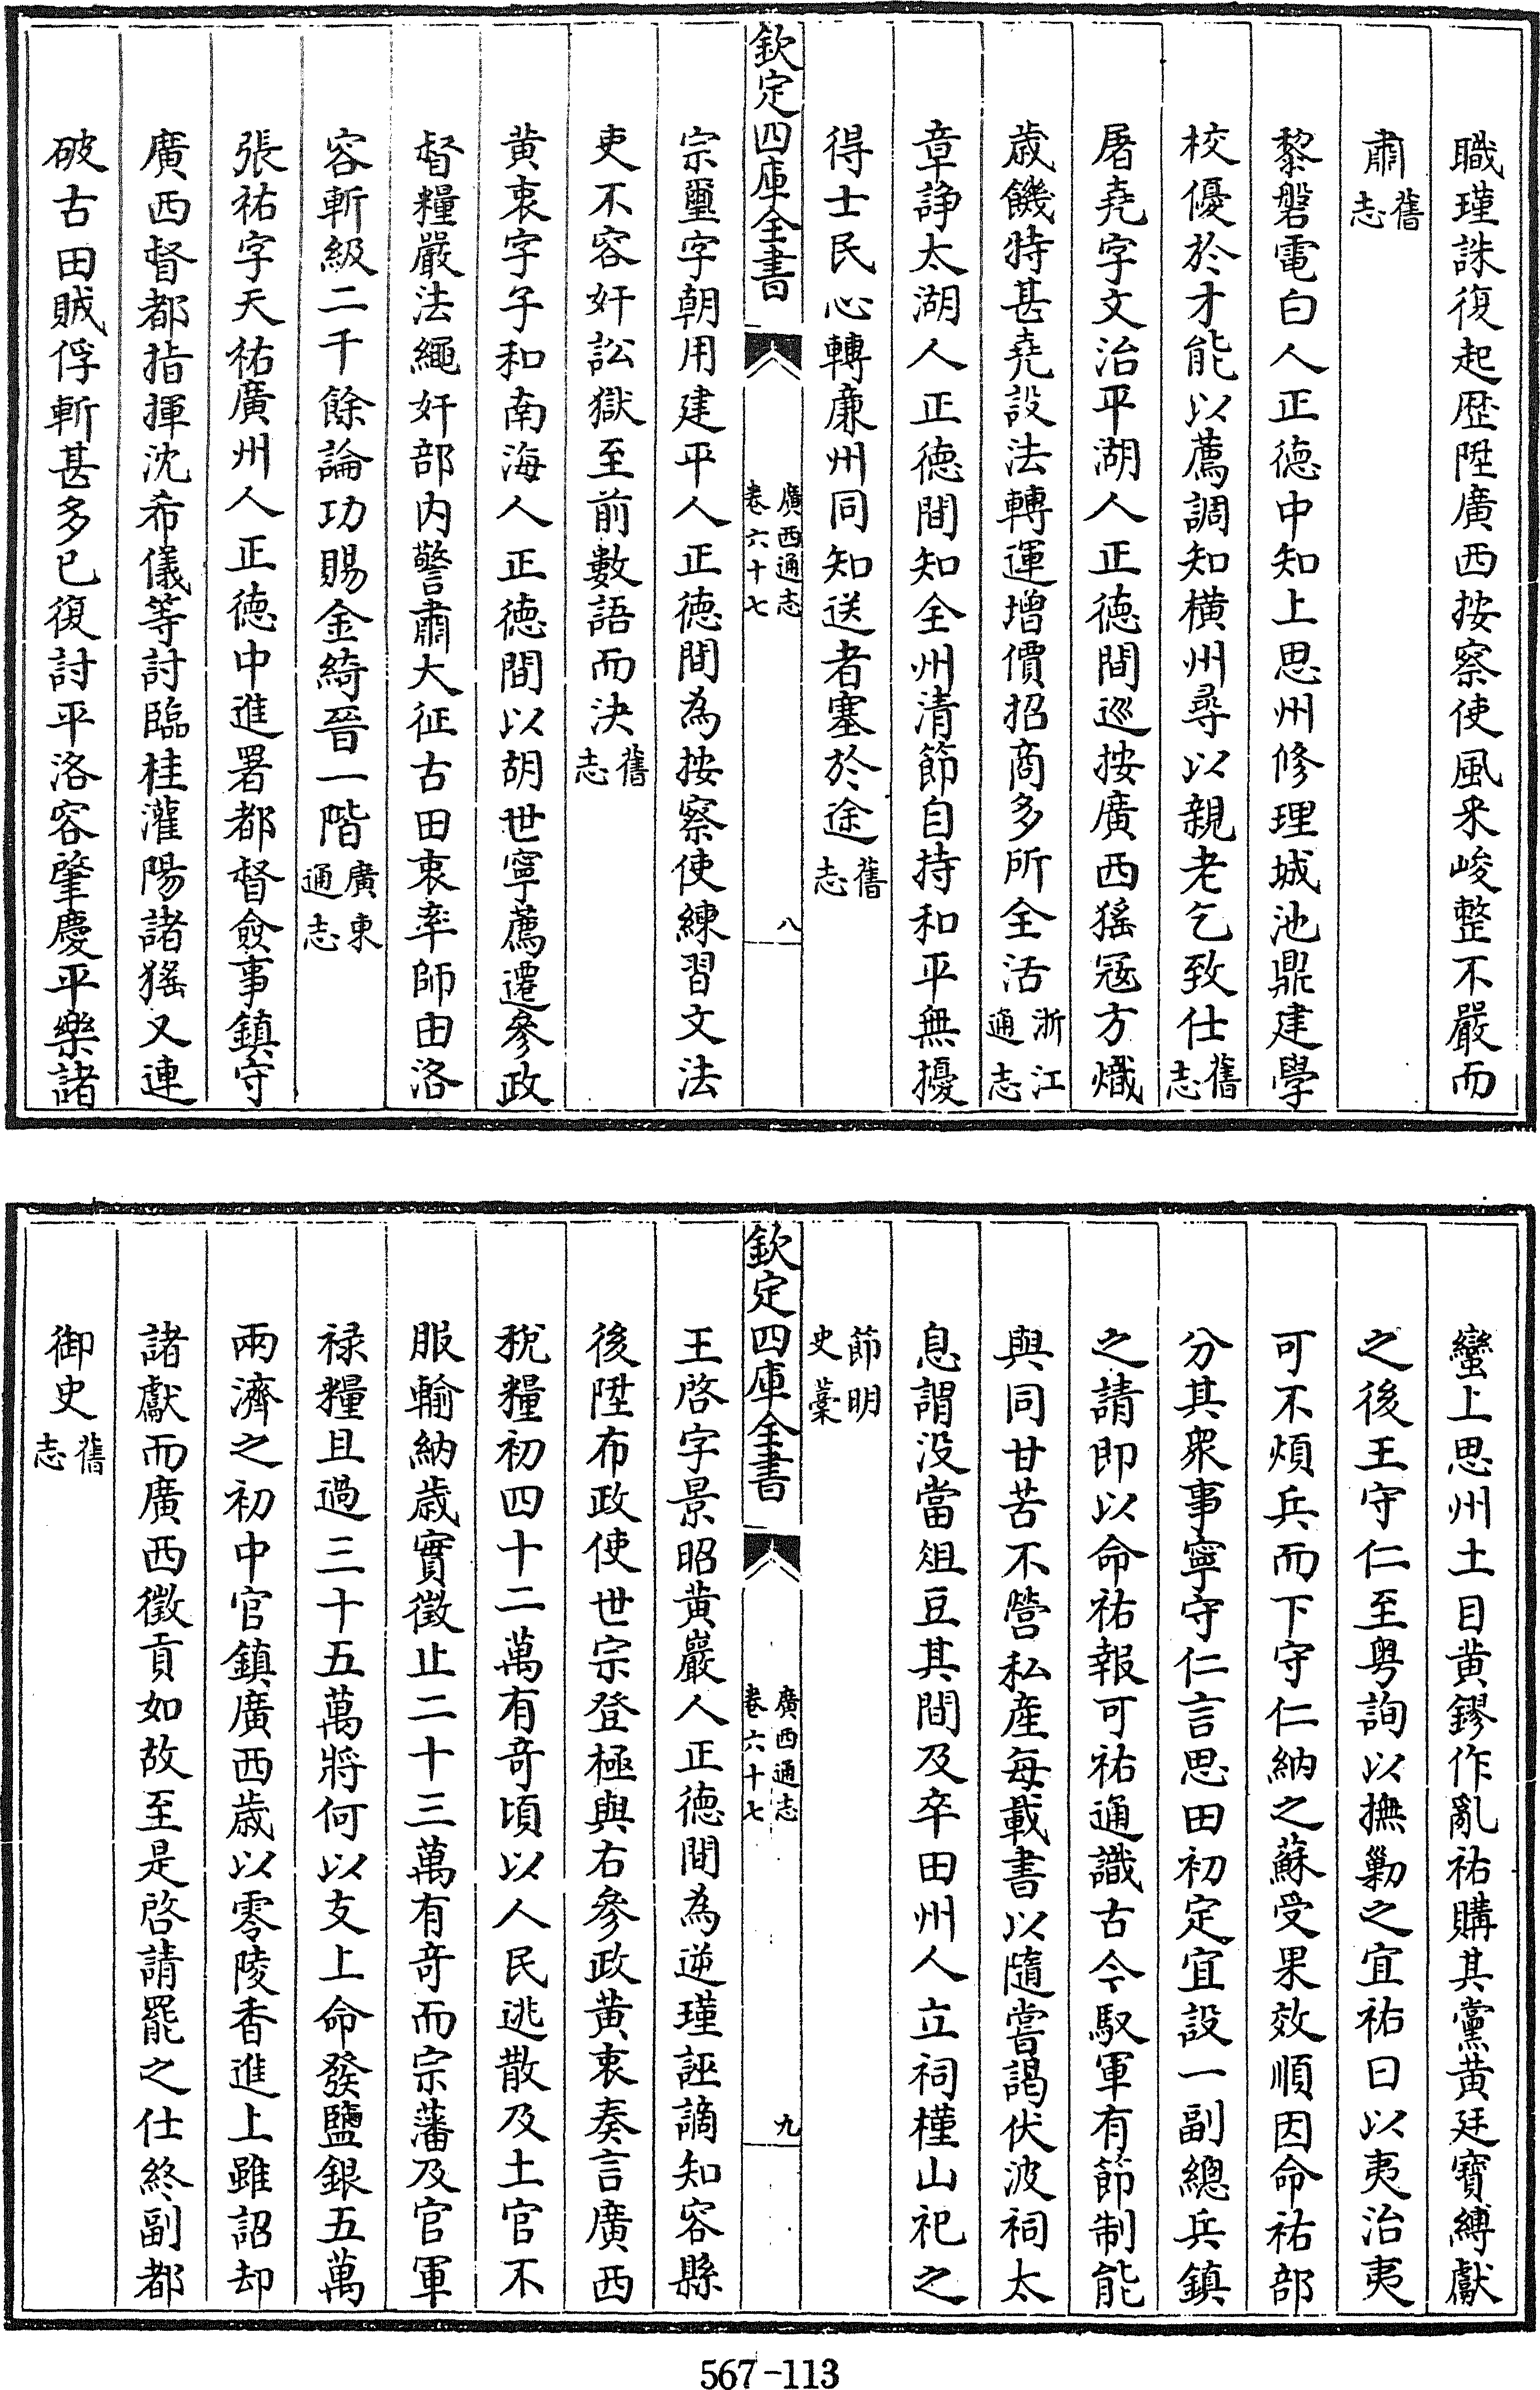 職瑾誅復起歴陞廣西按察使風采峻整不嚴而
肅舊志
黎磐電白人正德中知上思州修理城池鼎建學
校優於才能以薦調知横州尋以親老乞致仕舊志
屠堯字文治平湖人正德間巡按廣西猺冦方熾
歳饑特甚堯設法轉運增價招商多所全活浙江通志
章諍太湖人正德間知全州清節自持和平無擾
得士民心轉亷州同知送者塞於途舊志
欽定四庫全書 廣西通志 卷六十七 八
宗璽字朝用建平人正德間為按察使練習文法
吏不容奸訟獄至前數語而決舊志
黄衷字子和南海人正德間以胡世寧薦遷參政
督糧嚴法繩奸部内警肅大征古田衷率師由洛
容斬級二千餘論功賜金綺晉一階廣東通志
張祐字天祐廣州人正德中進署都督僉事鎮守
廣西督都指揮沈希儀等討臨桂灌陽諸猺又連
破古田賊俘斬甚多已復討平洛容肇慶平樂諸
蠻上思州土目黄鏐作亂祐購其黨黄廷寳縛獻
之後王守仁至粤詢以撫勦之宜祐曰以夷治夷
可不煩兵而下守仁納之蘇受果效順因命祐部
分其衆事寧守仁言思田初定宜設一副總兵鎮
之請即以命祐報可祐通識古今馭軍有節制能
與同甘苦不營私産每載書以隨嘗謁伏波祠太
息謂没當俎豆其間及卒田州人立祠橫山祀之
節明史藁
欽定四庫全書 廣西通志 卷六十七 九
王啓字景昭黄巖人正德間為逆瑾誣謫知容縣
後陞布政使世宗登極與右參政黄衷奏言廣西
稅糧初四十二萬有竒頃以人民逃散及土官不
服輸納歳實徵止二十三萬有竒而宗藩及官軍
禄糧且過三十五萬將何以支上命發鹽銀五萬
兩濟之初中官鎮廣西歳以零陵香進上雖詔却
諸獻而廣西徵貢如故至是啓請罷之仕終副都
御史舊志
567-113